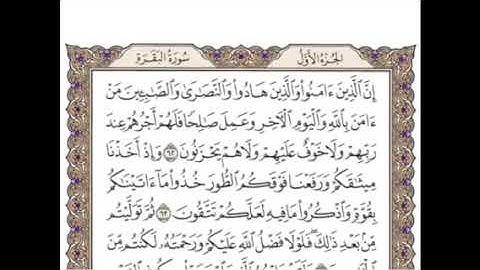 الجزء الأول
سورة البقرة
إِنَّ ٱلَّذِينَ ءَامَنُوا۟ وَٱلَّذِينَ هَادُوا۟ وَٱلنَّصَـٰرَىٰ وَٱلصَّـٰبِـِٔينَ مَنْ
ءَامَنَ بِٱللَّهِ وَٱلْيَوْمِ ٱلْـَٔاخِرِ وَعَمِلَ صَـٰلِحًا فَلَهُمْ أَجْرُهُمْ عِندَ
رَبِّهِمْ وَلَا خَوْفٌ عَلَيْهِمْ وَلَا هُمْ يَحْزَنُونَ ٦٢ وَإِذْ أَخَذْنَا
مِيثَـٰقَكُمْ وَرَفَعْنَا فَوْقَكُمُ ٱلطُّورَ خُذُوا۟ مَآ ءَاتَيْنَـٰكُم
بِقُوَّةٍ وَٱذْكُرُوا۟ مَا فِيهِ لَعَلَّكُمْ تَتَّقُونَ ٦٣ ثُمَّ تَوَلَّيْتُم
مِّنۢ بَعْدِ ذَٰلِكَ ۖ فَلَوْلَا فَضْلُ ٱللَّهِ عَلَيْكُمْ وَرَحْمَتُهُۥ لَكُنتُم مِّنَ